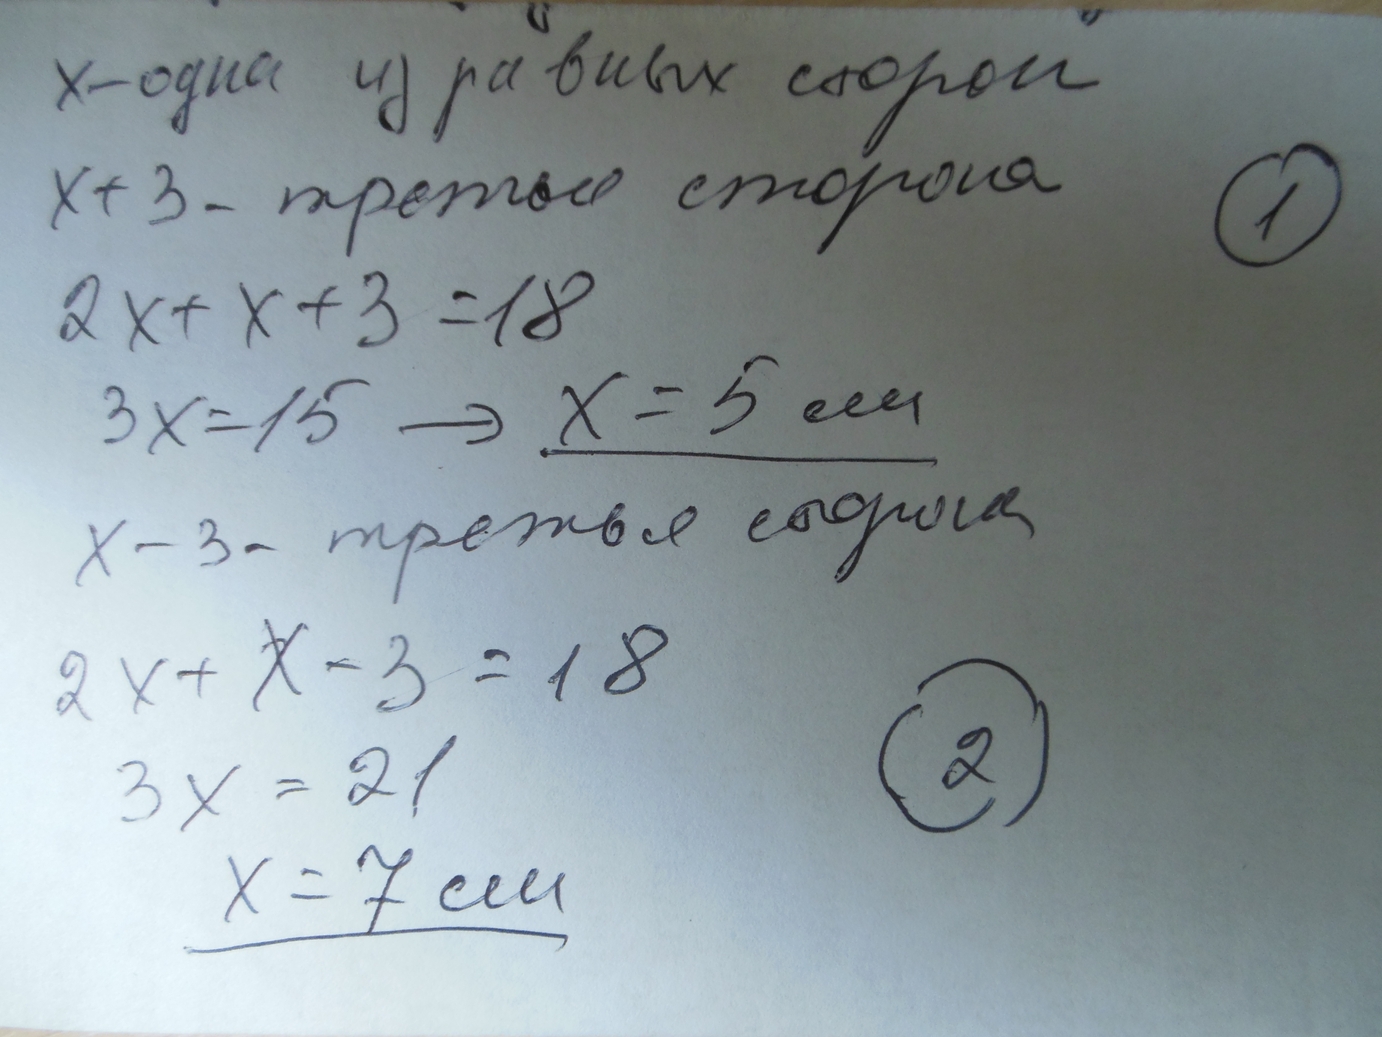 x - одна из равных сторон
x + 3 - третья сторона
1
2x + x + 3 = 18
3x = 15 → x = 5 см
x - 3 - третья сторона
2x + x - 3 = 18
2
3x = 21
x = 7 см